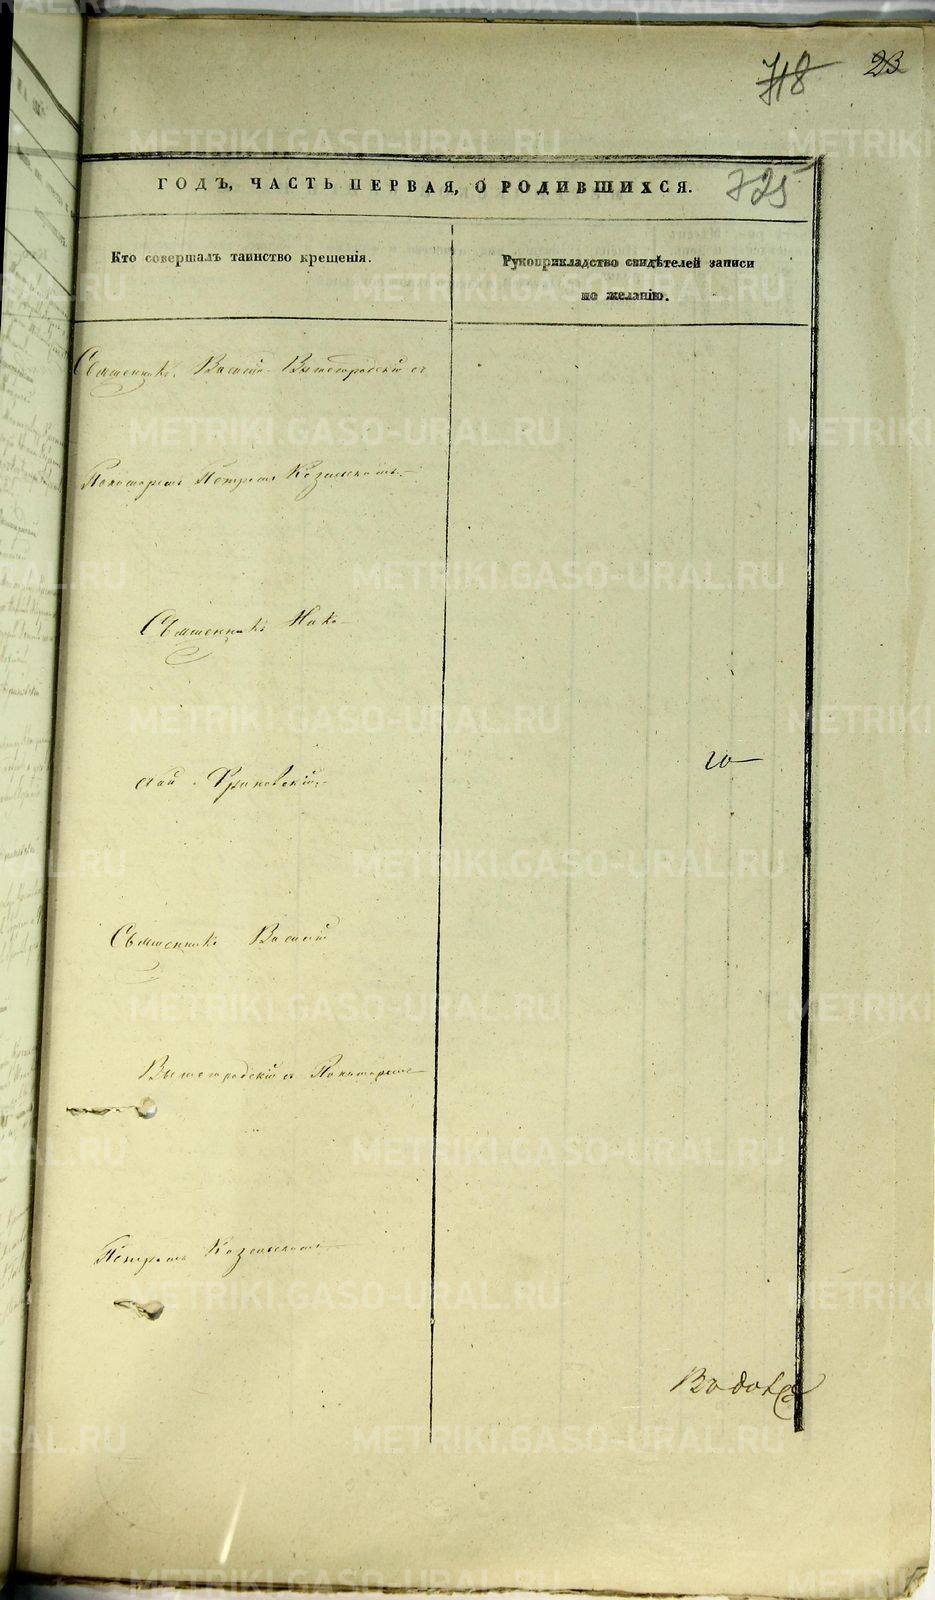 718 23
ГОДЪ, ЧАСТЬ ПЕРВАЯ, О РОДИВШИХСЯ. 725
Кто совершалъ таинство крещенія.
Рукоприкладство свидѣтелей записи
по желанію.
Священникъ Василій Вышегородскій съ
Пономаремъ Петромъ Козельскомъ
Священникъ Нико-
лай
ю
Священникъ Василій
Вышегородскій съ Пономаремъ
Петромъ Козельскомъ
METRIKI.GASO-URAL.RU